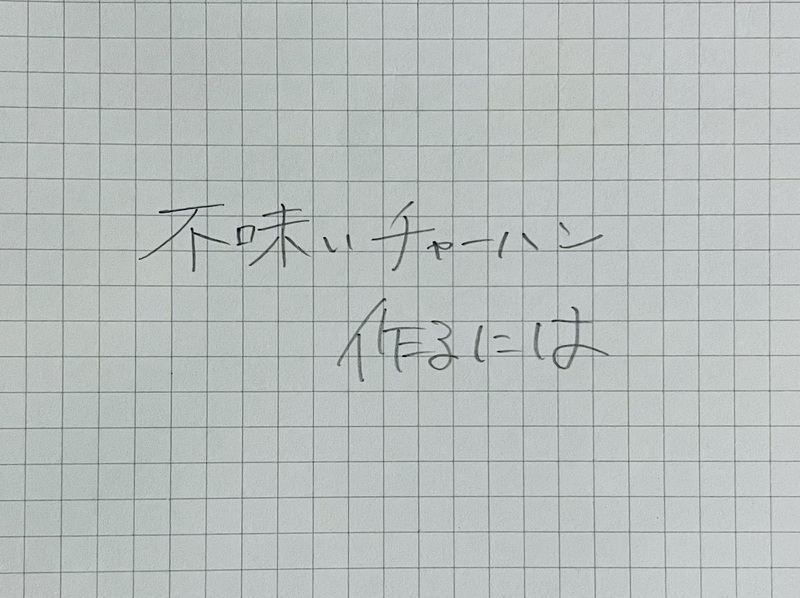 不味いチャーハン
作るには